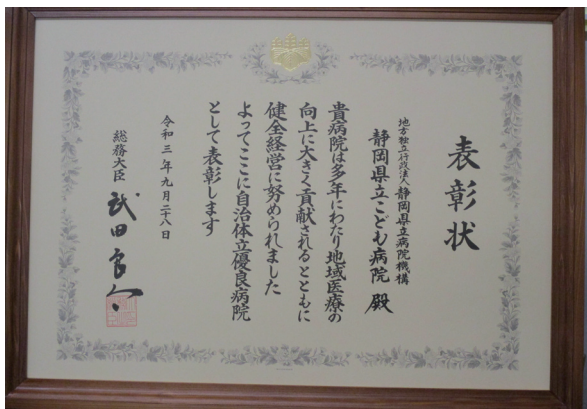 表彰状
地方独立行政法人静岡県立病院機構
静岡県立こども病院 殿
貴病院は多年にわたり地域医療の
向上に大きく貢献されるとともに
健全経営に努められました
よってここに自治体立優良病院
として表彰します
令和三年九月二十八日
総務大臣 武田良太